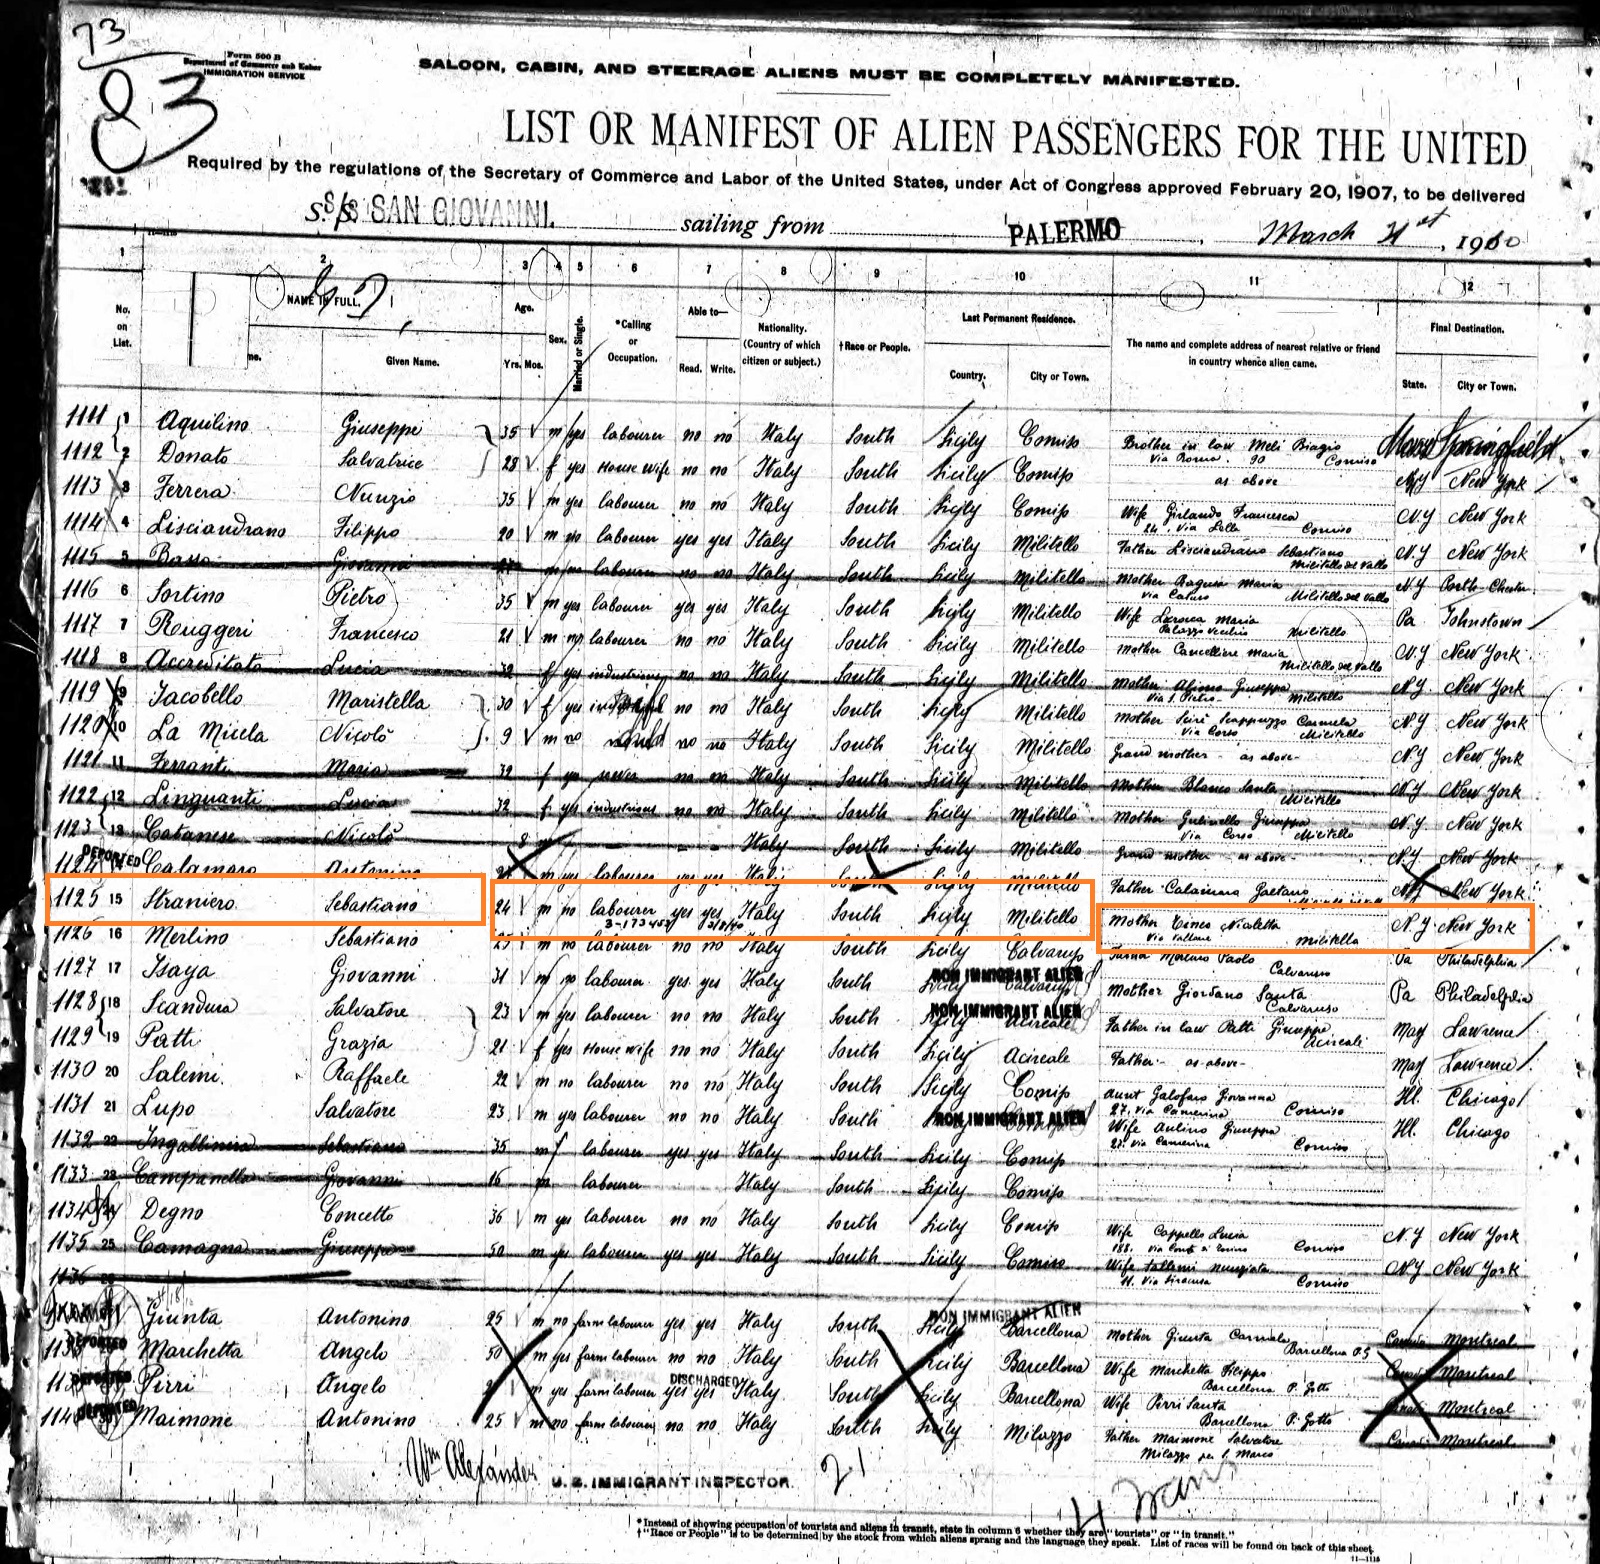 73
83
Form 500 B
Department of Commerce and Labor
IMMIGRATION SERVICE
SALOON, CABIN, AND STEERAGE ALIENS MUST BE COMPLETELY MANIFESTED.
LIST OR MANIFEST OF ALIEN PASSENGERS FOR THE UNITED
Required by the regulations of the Secretary of Commerce and Labor of the United States, under Act of Congress approved February 20, 1907, to be delivered
S.S. S/S SAN GIOVANNI. sailing from PALERMO, March 31st, 1910
1 2 3 4 5 6 7 8 9 10 11 12
No. on List. NAME IN FULL. Given Name. Age. Yrs. Mos. Sex. Married or Single. *Calling or Occupation. Able to— Read. Write. Nationality. (Country of which citizen or subject.) †Race or People. Last Permanent Residence. Country. City or Town. The name and complete address of nearest relative or friend in country whence alien came. Final Destination. State. City or Town.
1111 1 Aquilino Giuseppe 35 m yes labourer no no Italy South Sicily Comiso Brother in law Meli Biagio Via Roma 90 Comiso Mass Springfield
1112 2 Donato Salvatrice 28 f yes House wife no no Italy South Sicily Comiso as above N.Y New York
1113 3 Ferrera Nunzio 35 m yes labourer no no Italy South Sicily Comiso Wife Girlando Francesca 24. Via Lelle Comiso N.Y New York
1114 4 Lisciandrano Filippo 20 m no labourer yes yes Italy South Sicily Militello Father Lisciandrano Sebastiano Militello del Vallo N.Y New York
1115 5 Basso Giovanni labourer no no Italy South Sicily Militello Mother Maria Militello del Vallo N.Y Porth-Chester
1116 6 Sortino Pietro 35 m yes labourer yes yes Italy South Sicily Militello Wife Larocca Maria Palazzo Vecchio Militello Pa Johnstown
1117 7 Ruggeri Francesco 21 m no labourer no no Italy South Sicily Militello Mother Cancelliere Maria Militello del Vallo N.Y New York
1118 8 Accreditato Lucia 32 f yes no no Italy South Sicily Militello Mother Giuseppa Via S. Pietro Militello N.Y New York
1119 9 Iacobello Maristella 30 f yes no no Italy South Sicily Militello Mother Carmela Via Corso Militello N.Y New York
1120 10 La Micela Nicolò 9 m no no no Italy South Sicily Militello Grand mother - as above - N.Y New York
1121 11 Ferranti Maria 32 f yes no no Italy South Sicily Militello Mother Blanco Santa Militello N.Y New York
1122 12 Linguanti Lucia 32 f yes no no Italy South Sicily Militello Mother Giuseppa Via Corso Militello N.Y New York
1123 13 Catanese Nicolò 8 m - - - Italy South Sicily Militello Grand mother - as above - N.Y New York
DEPORTED
1124 14 Calamaro Antonino m yes labourer yes yes Italy South Sicily Militello Father Calamaro Gaetano N.Y New York
1125 15 Straniero Sebastiano 24 m no labourer yes yes Italy South Sicily Militello Mother Nicoletta Via Vallone Militello N.Y New York
1126 16 Merlino Sebastiano 25 m no labourer no no Italy South Sicily Calvaruso Merlino Paolo Calvaruso Pa Philadelphia
1127 17 Isaya Giovanni 31 m labourer yes yes Italy South NON IMMIGRANT ALIEN Sicily Calvaruso Mother Giordano Santa Calvaruso Pa Philadelphia
1128 18 Scandura Salvatore 23 m yes labourer no no Italy South NON IMMIGRANT ALIEN Sicily Acireale Father in law Patti Giuseppe Acireale Mass Lawrence
1129 19 Patti Grazia 21 f yes House wife no no Italy South Sicily Acireale Father - as above - Mass Lawrence
1130 20 Salemi Raffaele 22 m no labourer no no Italy South Sicily Comiso Aunt Galofaro Giovanna 27. Via Camerina Comiso Ill. Chicago
1131 21 Lupo Salvatore 23 m yes labourer no no Italy South NON IMMIGRANT ALIEN Wife Aulino Giuseppa 23. Via Camerina Comiso Ill. Chicago
1132 22 Ingallinera Sebastiano 35 m labourer yes yes Italy South Sicily Comiso
1133 23 Campanella Giovanni 16 m labourer Italy South Sicily Comiso
1134 24 Degno Concetto 36 m yes labourer no no Italy South Sicily Comiso Wife Cappello Lucia 188. Comiso N.Y New York
1135 25 Camagna Giuseppe 50 m yes labourer yes yes Italy South Sicily Comiso Wife Nunziata 11. Via Siracusa Comiso N.Y New York
1136 26
Giunta Antonino 25 m no farm labourer yes yes Italy South NON IMMIGRANT ALIEN Sicily Barcellona Mother Giunta Carmela Barcellona P.G Canada Montreal
DEPORTED Marchetta Angelo 50 m yes farm labourer no no Italy South Sicily Barcellona Wife Marchetta Filippa Barcellona P. Gotto Canada Montreal
DISCHARGED
DEPORTED Pirri Angelo m yes farm labourer yes yes Italy South Sicily Barcellona Wife Pirri Santa Barcellona P. Gotto Canada Montreal
DEPORTED Maimone Antonino 25 m no farm labourer no no Italy South Sicily Milazzo Father Maimone Salvatore Milazzo per S. Marco Canada Montreal
Wm Alexander U. S. IMMIGRANT INSPECTOR. 21
4 Trans
*Instead of showing occupation of tourists and aliens in transit, state in column 6 whether they are "tourists" or "in transit."
†"Race or People" is to be determined by the stock from which aliens sprang and the language they speak. List of races will be found on back of this sheet.